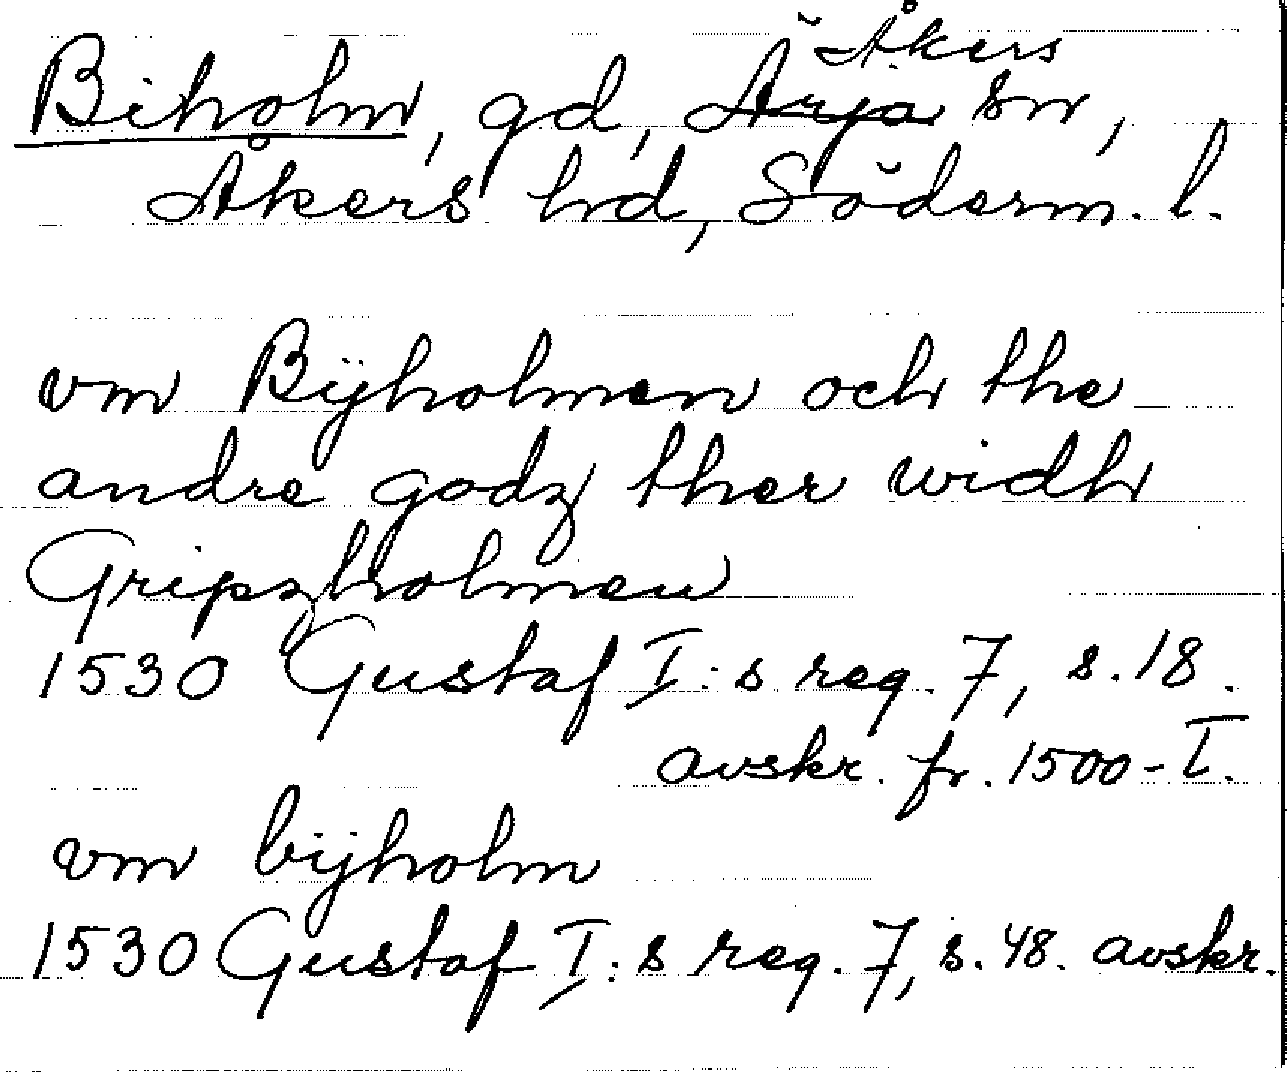 Åkers
Biholm, gd, Ärja sn,
Åkers hd, Söderm. l.
vm Bijholmen och the
andre godz ther widh
Gripzholmen
1530 Gustaf I:s reg. 7, s. 18.
avskr. fr. 1500-t.
vm bijholm
1530 Gustaf I:s reg. 7, s. 48. avskr.